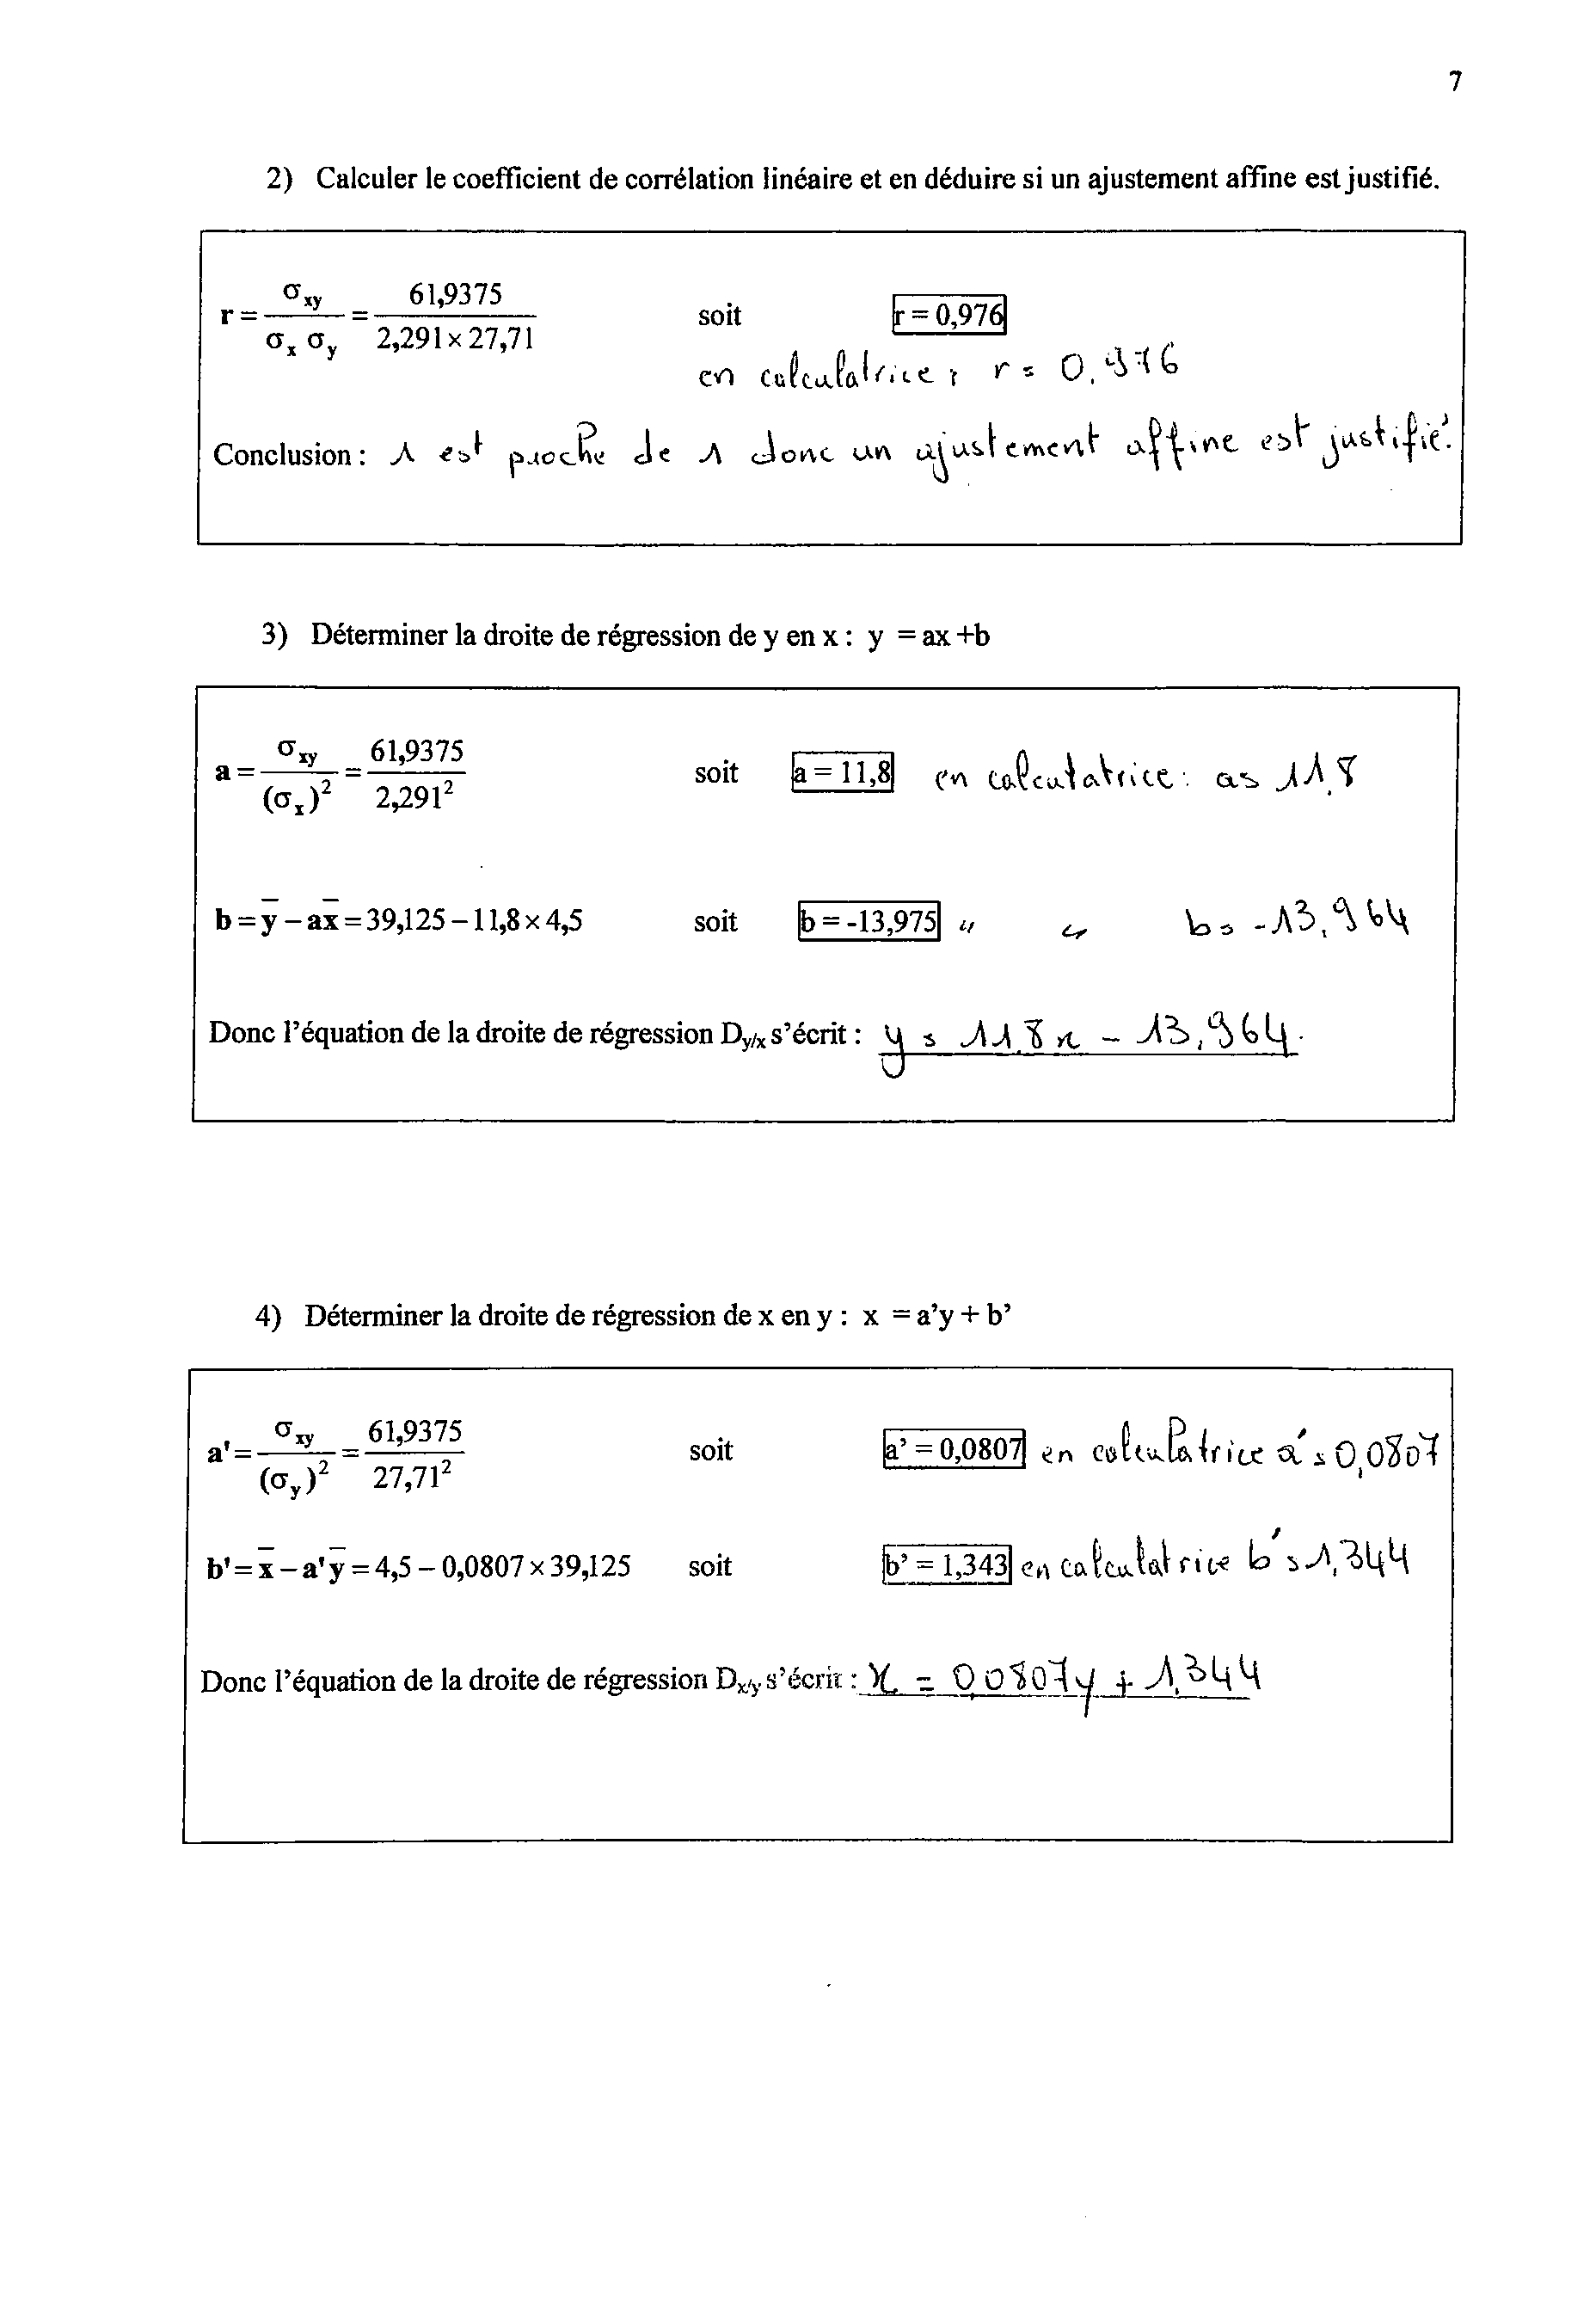 7
2) Calculer le coefficient de corrélation linéaire et en déduire si un ajustement affine est justifié.
r = σxy / (σx σy) = 61,9375 / (2,291 × 27,71) soit r = 0,976
en calculatrice : r = 0,976
Conclusion : 1 est proche de 1 donc un ajustement affine est justifié.
3) Déterminer la droite de régression de y en x : y = ax +b
a = σxy / (σx)² = 61,9375 / 2,291² soit a = 11,8 en calculatrice : a = 11,8
b = y̅ – ax̅ = 39,125 – 11,8 × 4,5 soit b = -13,975 " " b = -13,964
Donc l'équation de la droite de régression Dy/x s'écrit : y = 11,8x - 13,964.
4) Déterminer la droite de régression de x en y : x = a'y + b'
a' = σxy / (σy)² = 61,9375 / 27,71² soit a' = 0,0807 en calculatrice a' = 0,0807
b' = x̅ – a'y̅ = 4,5 – 0,0807 × 39,125 soit b' = 1,343 en calculatrice b' = 1,344
Donc l'équation de la droite de régression Dx/y s'écrit : x = 0,0807y + 1,344